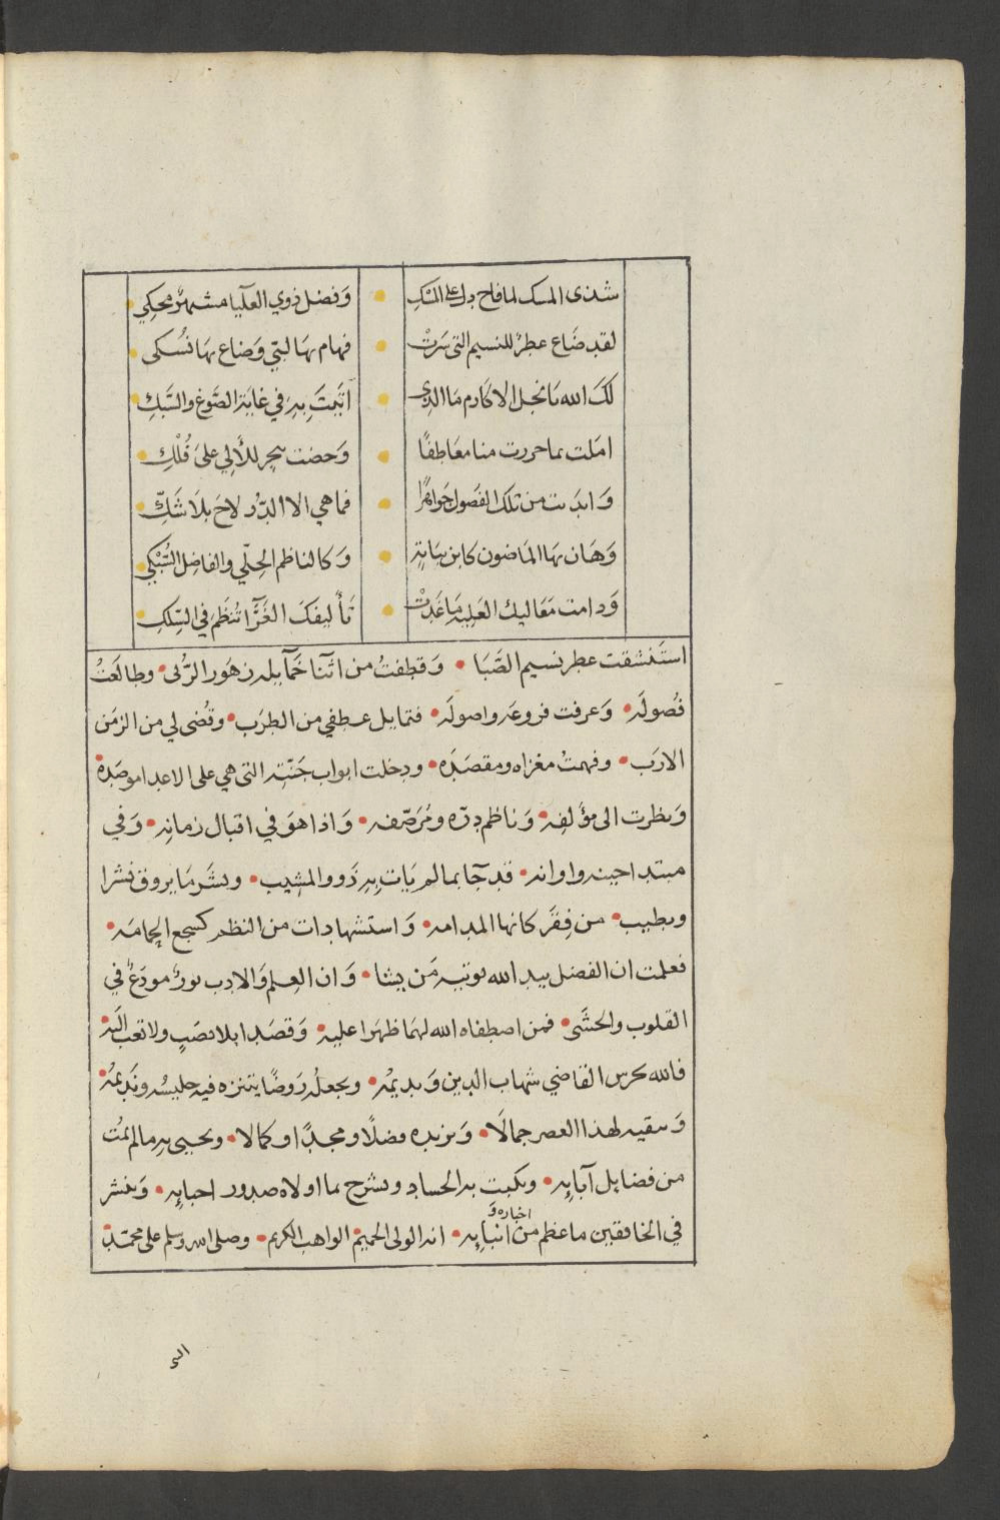 شذى المسك لما فاح دل على المسك • وَفضل ذوي العلَيا مشتهرٌ محكِي
لقد ضَاع عطرٌ للنسيم التى سَرَتْ • فهام بهَا لبّي وَضاع بهَا نُسُكى
لكَ الله مَا نجل الاكَارم مَا الذى • اَتَيتَ بهِ في غايَة الصَّوغ والسَّبكِ
املت بما حررت منا معَاطِفًا • وَخضت ببحر للألى علىَ فُلْكِ
وَابدَيت من تلك الفصول جَواهرًا • فما هي الا الدّر لاحَ بلاَ شَكِّ
وَهَان بهَا الماضون كابن بنانةٍ • وَكالناظم الحِلّي والفاضل السُّبْكي
وَدامت مَعَاليك العَليه مَا غَدَتْ • تأليفكَ الغَرّا تُنظَم في السِّلكِ
استَنشقت عطر نسيم الصَّبَا • وَقطفتُ من اثنا خمآيله زهَور الرُّبى • وطالعَتُ
فصُولَه • وَعرفت فروعَه واصولَه • فتمايل عطفي من الطرَب • وقُضى لي من الزمَن
الارَب • وفهمتُ مغزاه ومقصَدَه • ودخلت ابواب جَنّته التى هي على الاعدا موصَدة
وَنظرت الى مؤلفِه • وَناظم درّه ومُرَصّفه • وَاذا هوَ في اقبال زمانِه • وَفي
مبتدا حينه واوانه • قد جَآ بما لم يَات بِهِ ذَوو المشيب • ونشَر مَا يروق نشرا
ويطيب • من فِقَر كانها المدامه • وَاستشهادات من النظم كسجع الحِمامَه •
فعلمت ان الفضل بيد الله يوتيه مَن يشا • وَان العِلم وَالادب نورٌ مودَعٌ في
القلوب والحشَى • فمن اصطفاه الله لهمَا ظهرَا عليه • وَقصَدا بلا نصَبٍ ولا تعب الَيه
فالله يحرس القاضي شهاب الدين وَيديمُه • ويجعلُه رَوضًا يتنزه فيه جليسُه ونَديمُه •
وَيبقيه لهذا العصر جمالَا • وَيزيده فضلًا ومجدًا وكمالا • ويحيى بهِ ما لم يمُت
من فضايل آبايِه • ويكبت به الحساد ويشرح بما اولاه صدور احبايِه • وَينشر
في الخافقين ما عظم من اخباره وَانبايِه • انه الولى الحميم الواهب الكريم • وصلى الله وسلم على محمّد